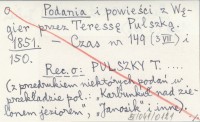 Podania i powieści z Wę-
gier przez Teressę Pulszky.
1851. – Czas nr 149 (3 VII) i
150.
Rec. o: PULSZKY T. ....
(z przedrukiem niektórych podań w
przekładzie pol.: „Karbunkuł nad zie-
lonem jeziorem”, „Janosik” i inne).